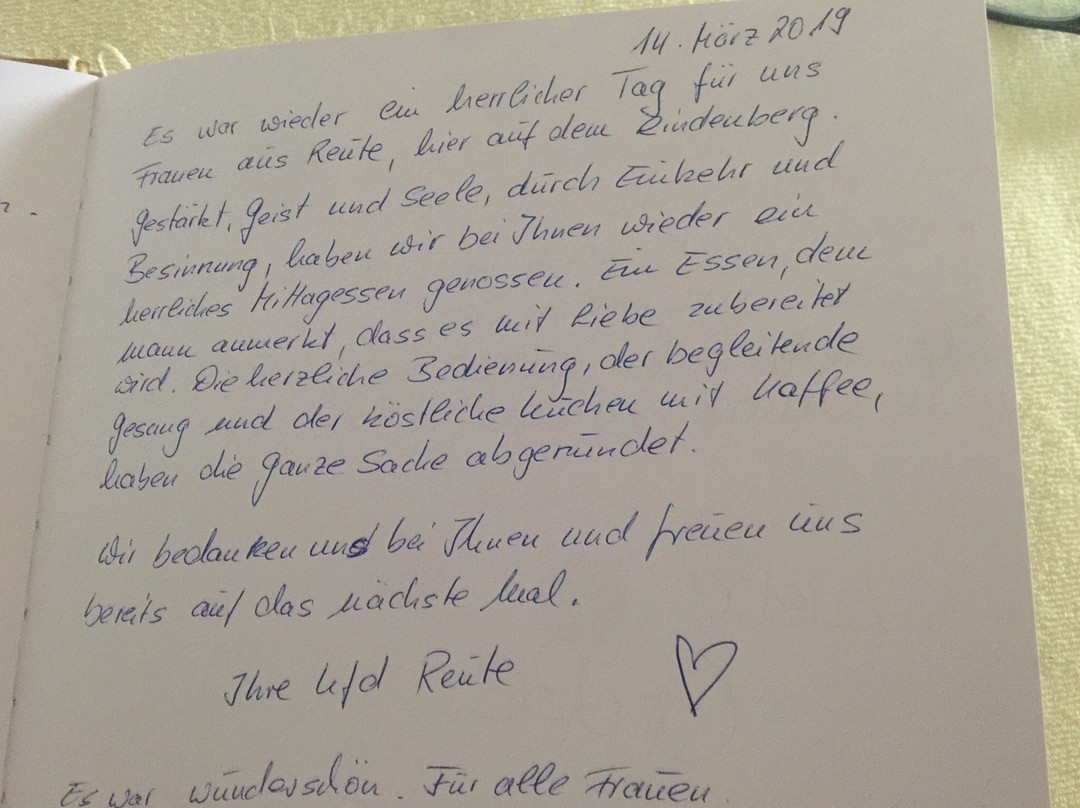 14. März 2019
Es war wieder ein herrlicher Tag für uns
Frauen aus Reute, hier auf dem Lindenberg.
Gestärkt, Geist und Seele, durch Einkehr und
Besinnung, haben wir bei Ihnen wieder ein
herrliches Mittagessen genossen. Ein Essen, dem
mann anmerkt, dass es mit Liebe zubereitet
wird. Die herzliche Bedienung, der begleitende
Gesang und der köstliche Kuchen mit Kaffee,
haben die ganze Sache abgerundet.
Wir bedanken uns bei Ihnen und freuen uns
bereits auf das nächste Mal.
Ihre kfd Reute
Es war wunderschön. Für alle Frauen.